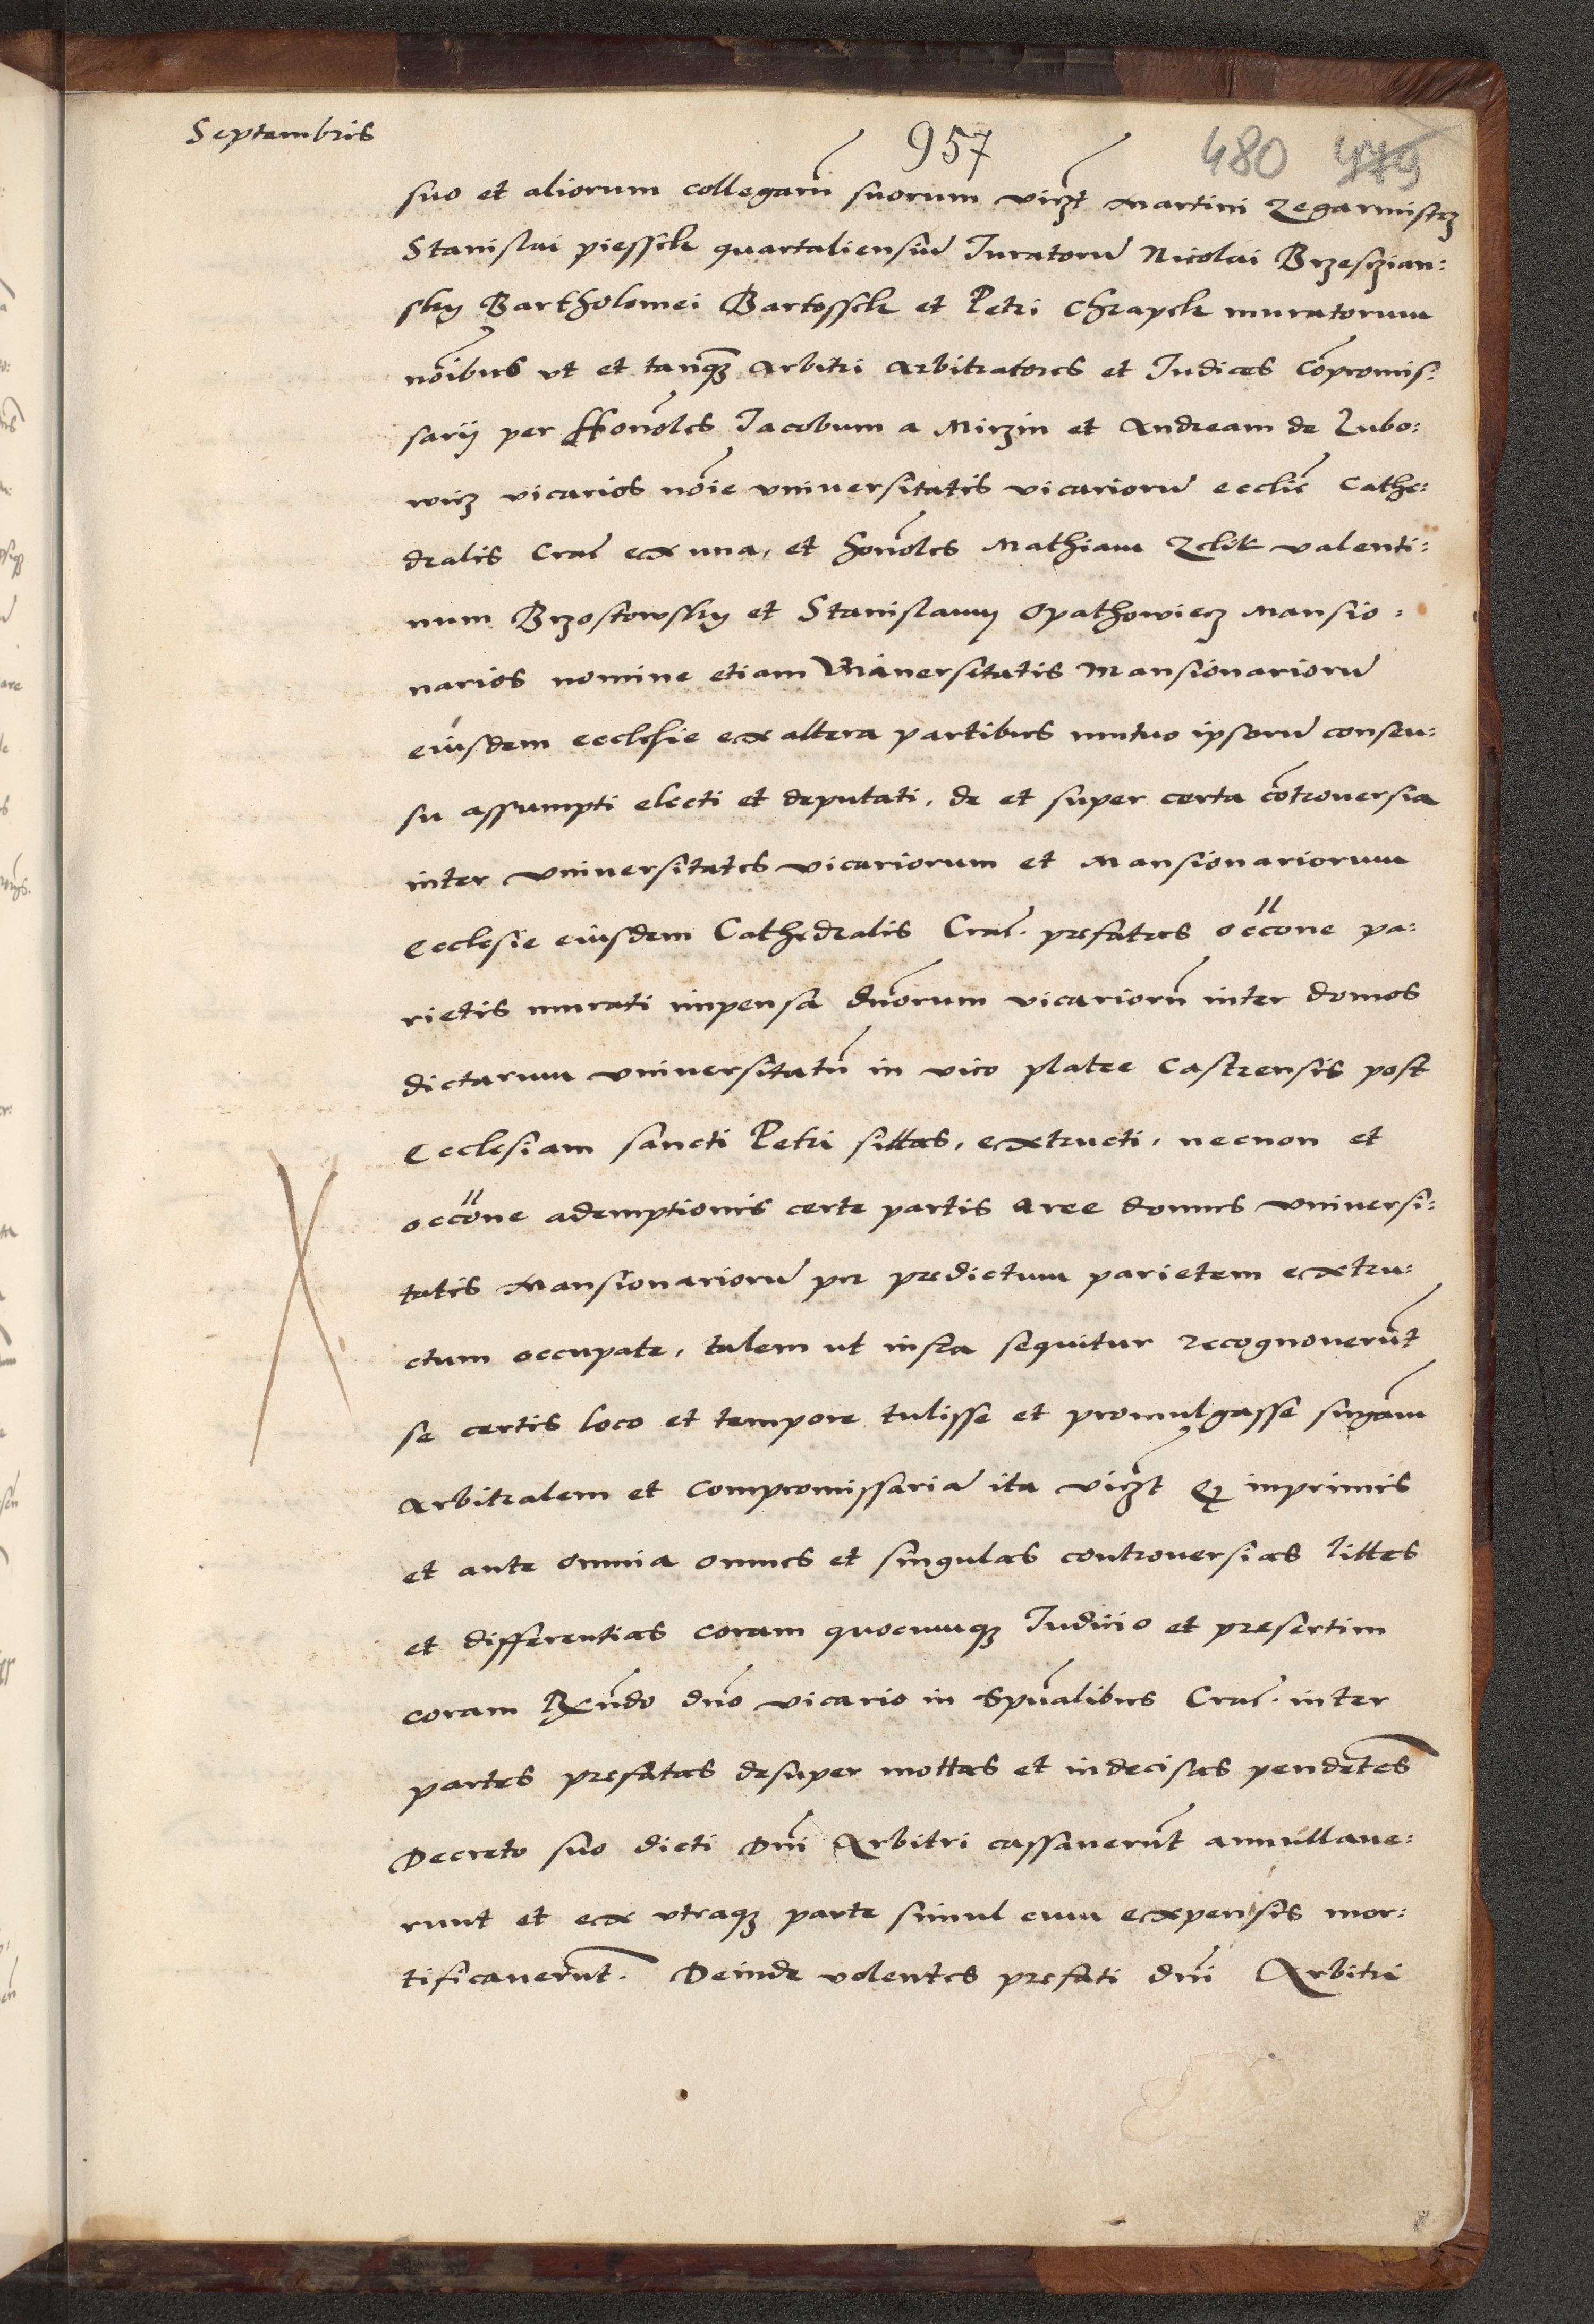 Septembris
957
480 479
suo et aliorum collegarū suorum viczt Martini Zegarmistrz
Stanislai piessek quartaliensiū Iuratorū Nicolai Brzeszian:
sky Bartholomei Bartossek et Petri Chrapek muratorum
nōibus vt et tanq̄ Arbitri Arbitratores et Iudices Cōpromis:
sarij per Honōles Iacobum a Mirzin et Andream de Lubo:
wicz vicarios nōie vniuersitatis vicariorū eccliē Cathe:
dralis Crac̄ ex una, et honōles Mathiam Zelik valenti:
num Brzostowsky et Stanislaum Opathowiecz Mansio:
narios nomine etiam Vniuersitatis Mansionariorū
eiusdem ecclesie ex altera partibus mutuo ipsorū consen:
su assumpti electi et deputati, de et super certa cōtrouersia
inter vniuersitates vicariorum et Mansionariorum
Ecclesie eiusdem Cathedralis Crac̄. prefatas occōne pa:
rietis murati impensa dn̄orum vicariorū inter domos
dictarum vniuersitatū in vico platee Castrensis post
Ecclesiam sancti Petri sittas, extructi, necnon et
occōne ademptionis certe partis aree domus vniuersi:
tatis Mansionariorū per predictum parietem extru:
ctum occupate, talem ut infra sequitur recognouerūt
se certis loco et tempore tulisse et promulgasse sn̄iam
Arbitralem et Compromissariā ita viczt Qꝫ inprimis
et ante omnia omnes et singulas controuersias littes
et differentias coram quocumqꝫ Iudicio et presertim
coram Rn̄do dn̄o vicario in Spūalibus Crac̄. inter
partes prefatas desuper mottas et indecisas pendētes
Decreto suo dicti Dn̄i Arbitri cassauerūt annullaue:
runt et ex vtraqꝫ parte simul cum expensis mor:
tificauerūt. Deinde volentes prefati dn̄i Arbitri